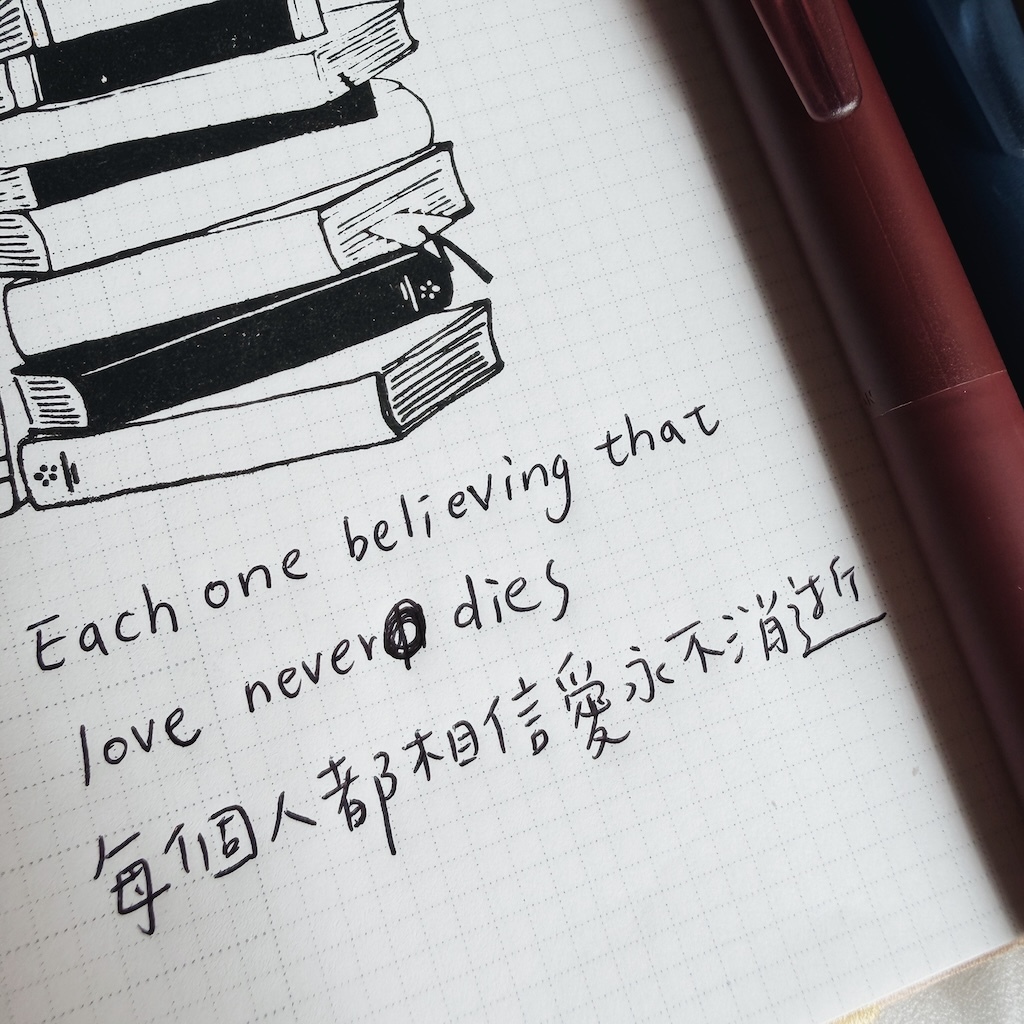 Each one believing that
love never dies
每個人都相信愛永不消逝